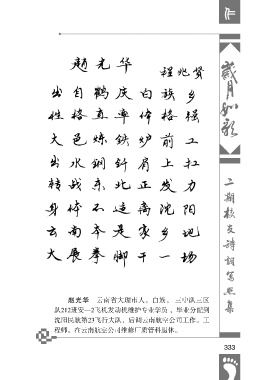 赵光华
程兆贤
出自鹤庆白族乡
性格直率体格强
大邑炼铁炉前工
出水钢钎肩上扛
转战东北正发力
身体不适离沈阳
云南本是家乡地
大展拳脚干一场
赵光华 云南省大理市人，白族，三中队三区
队212班安—2飞机发动机维护专业学员，毕业分配到
沈阳民航第23飞行大队，后调云南航空公司工作，工
程师。在云南航空公司维修厂质管科退休。
作
岁月如歌
二期校友诗词写照集
333